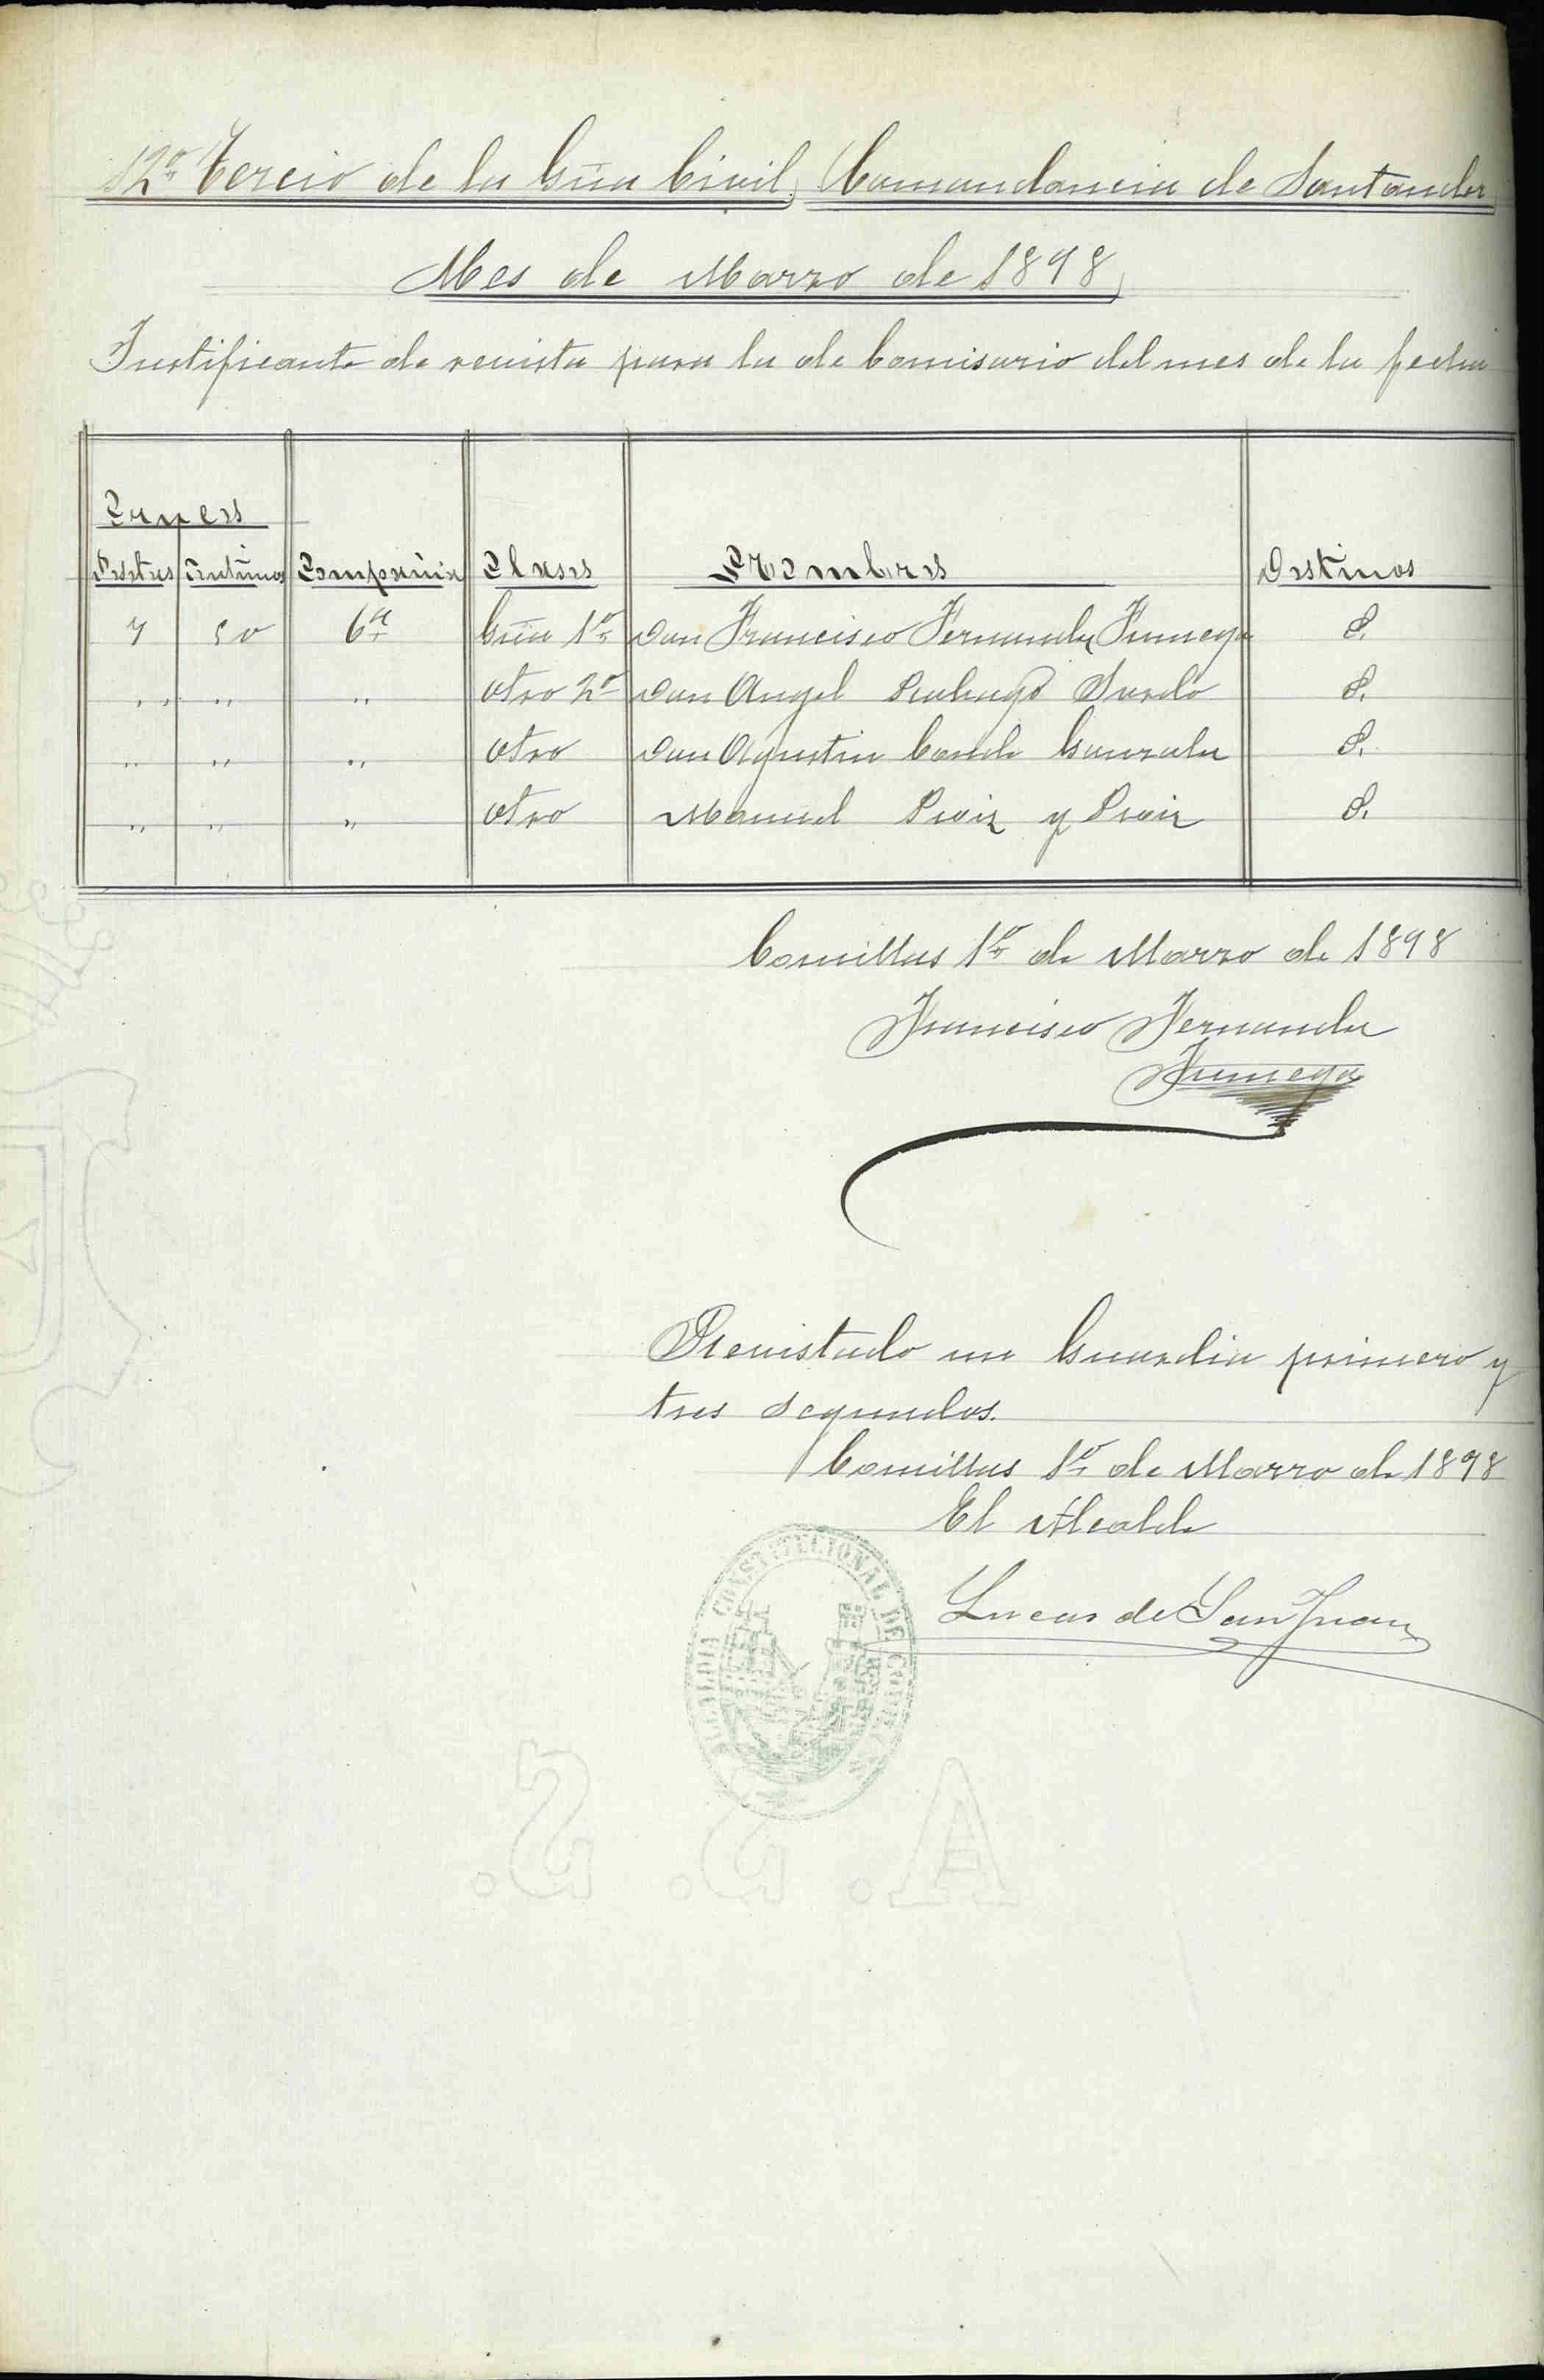 12º Tercio de la Gūa Civil, Comandancia de Santander
Mes de Marzo de 1898,
Justificante de revista para la de Comisario del mes de la fecha
Cruces
Pesetas Centimos Compañia Clases Nombres Destinos
7 50 6ª Gūa 1º Don Francisco Fernandez Fumega P.
" " " " Otro 2º Don Angel Pardo P.
" " " Otro Don Agustin Conde Gonzalez P.
" " " Otro Manuel Ruiz y Ruiz P.
Comillas 1º de Marzo de 1898
Francisco Fernandez
Fumega
Revistado un Guardia primero y
tres segundos.
Comillas 1º de Marzo de 1898
El Alcalde
Lucas de San Juan
ALCALDIA CONSTITUCIONAL DE COMILLAS
A. S. S.